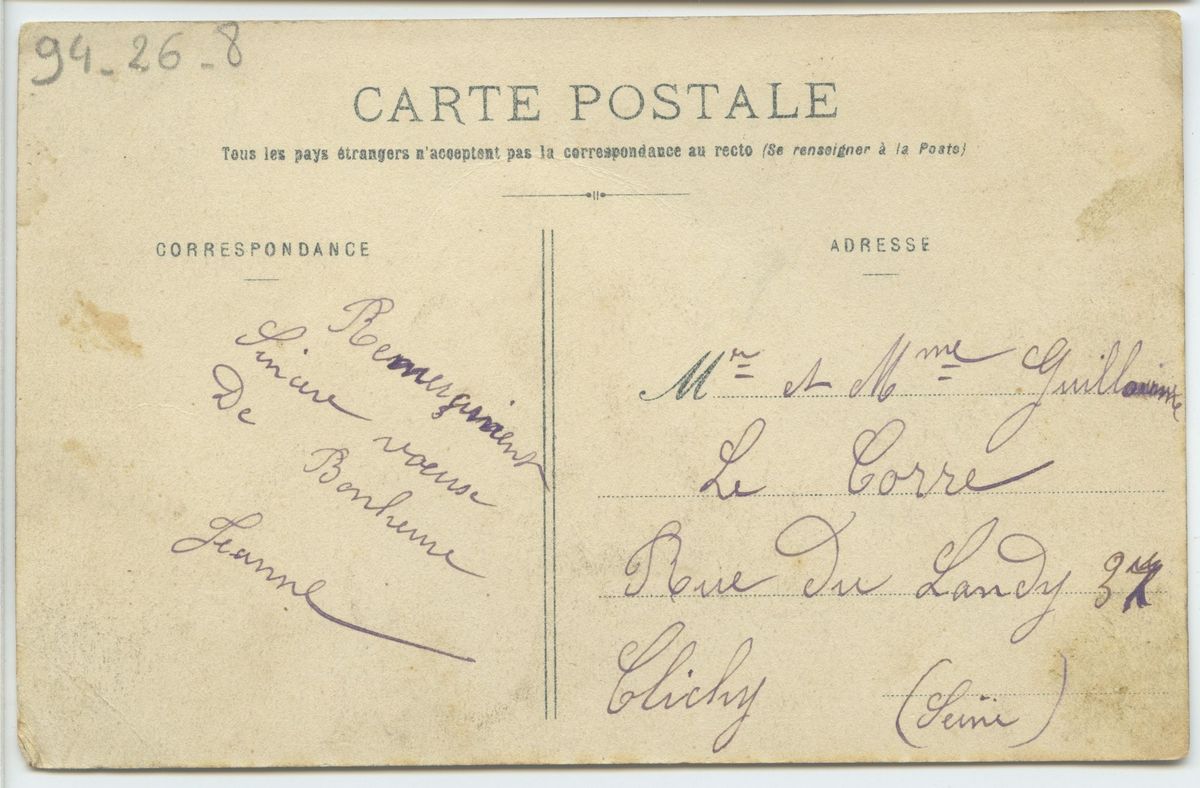 94-26-8
CARTE POSTALE
Tous les pays étrangers n'acceptent pas la correspondance au recto (Se renseigner à la Poste)
CORRESPONDANCE
Sincere voeuse
De Bonheure
Jeanne
ADRESSE
Mr et Mme Guillaume
Le Corre
Rue Du Landy
Clichy (Seine)